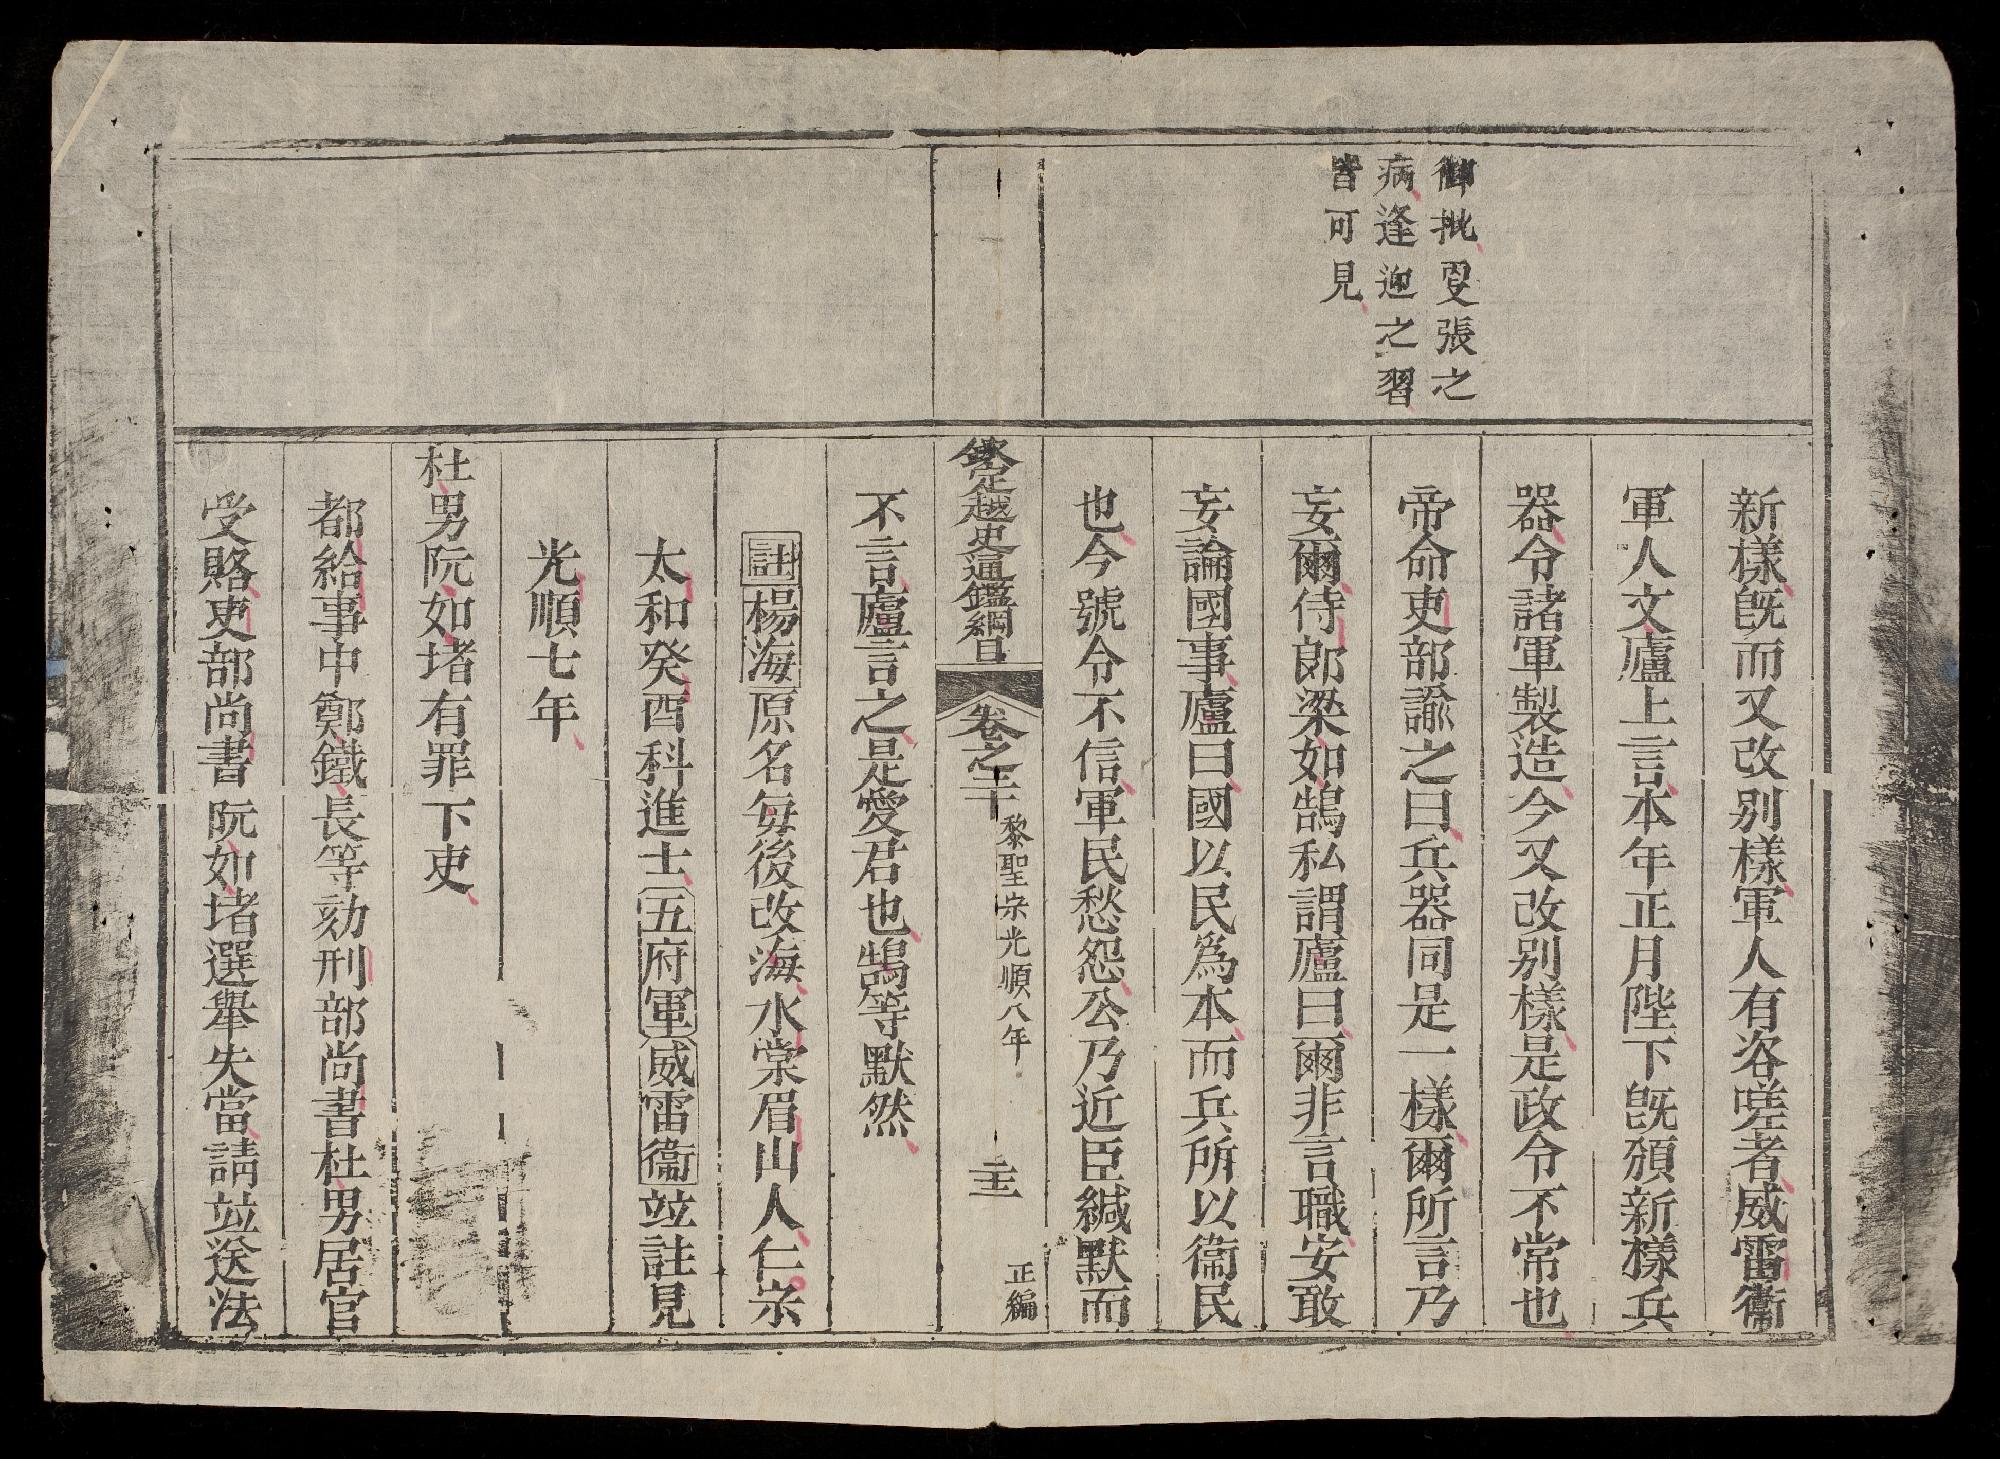 御批更張之
病逢迎之習
皆可見
新樣旣而又改別樣軍人有咨嗟者威雷衞
軍人文廬上言本年正月陛下旣頒新樣兵
器令諸軍製造今又改別樣是政令不常也
帝命吏部諭之曰兵器同是一樣爾所言乃
妄爾侍郎梁如鵠私謂廬曰爾非言職安敢
妄論國事廬曰國以民爲本而兵所以衞民
也今號令不信軍民愁怨公乃近臣緘默而
欽定越史通鑑綱目
卷之二十
黎聖宗光順八年
二十三
正編
不言廬言之是愛君也鵠等默然
註楊海原名每後改海水棠眉山人仁宗
太和癸酉科進士五府軍威雷衞竝註見
光順七年
杜男阮如堵有罪下吏
都給事中鄭鐵長等劾刑部尚書杜男居官
受賂吏部尚書阮如堵選舉失當請竝送法